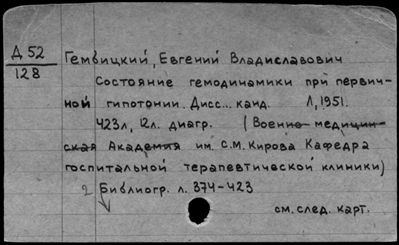 Д 52
128
Гембицкий, Евгений Владиславович
Состояние гемодинамики при первич-
ной гипотонии. Дисс... канд. Л, 1951.
423л, 12л. диагр. (Военно-медицин-
ская Академия им. С.М.Кирова Кафедра
госпитальной терапевтической клиники)
2 Библиогр. л. 374-423
см.след. карт.